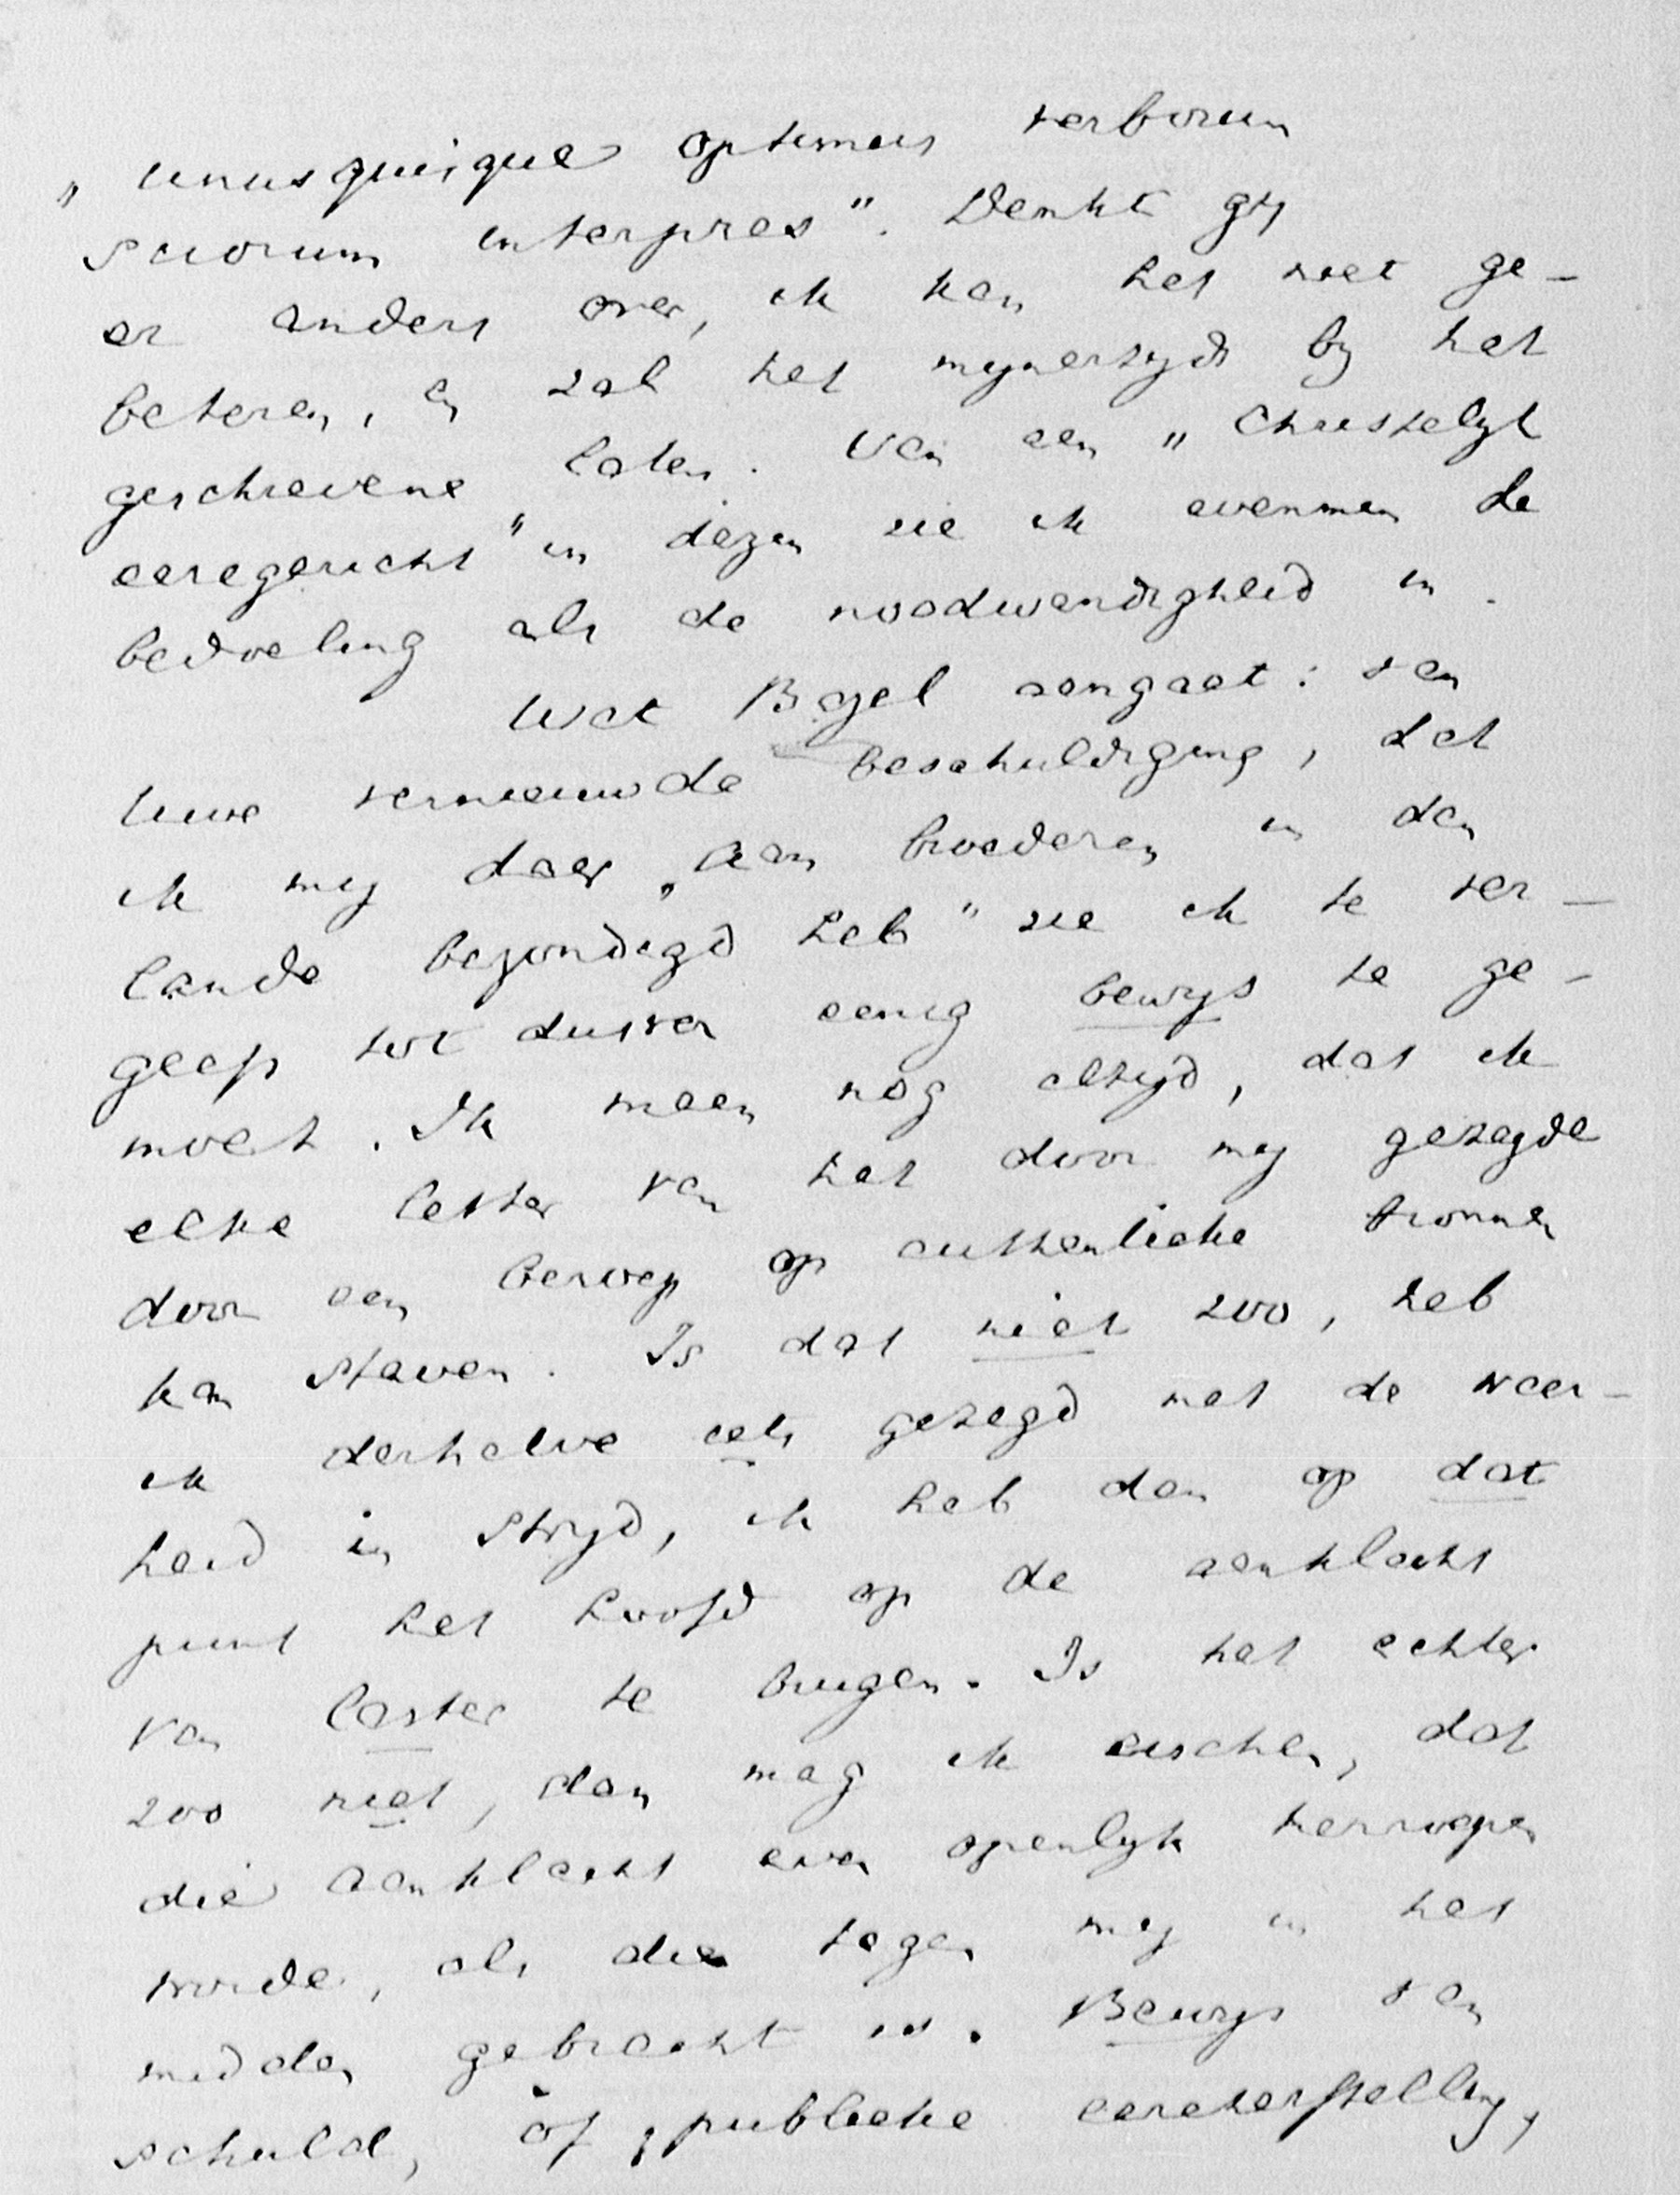 „ unusquisque optimus verborum
suorum interpres". Denkt gij
er anders over, ik kan het niet ge-
beteren, en zal het mijnerzijds bij het
geschrevene laten. Van een „Christelijk
eeregericht" in dezen zie ik evenmin de
bedoeling als de noodwendigheid in.
Wat Bijel aangaat: van
Uwe vernieuwde beschuldiging, dat
ik mij daar „aan broederen in den
lande bezondigd heb" zie ik te ver-
geefs tot dusver eenig bewijs te ge-
moet. Ik meen nog altijd, dat ik
elke letter van het door mij gezegde
door een beroep op authentieke bronnen
kan staven. Is dat niet zoo, heb
ik derhalve iets gezegd met de waar-
heid in strijd, ik heb dan op dat
punt het hoofd op de aanklacht
van laster te buigen. Is het echter
zoo niet, dan mag ik eischen, dat
die aanklacht even openlijk herroepen
worde, als die tegen mij in het
midden gebracht is. Bewijs van
schuld, òf publieke eereherstelling,